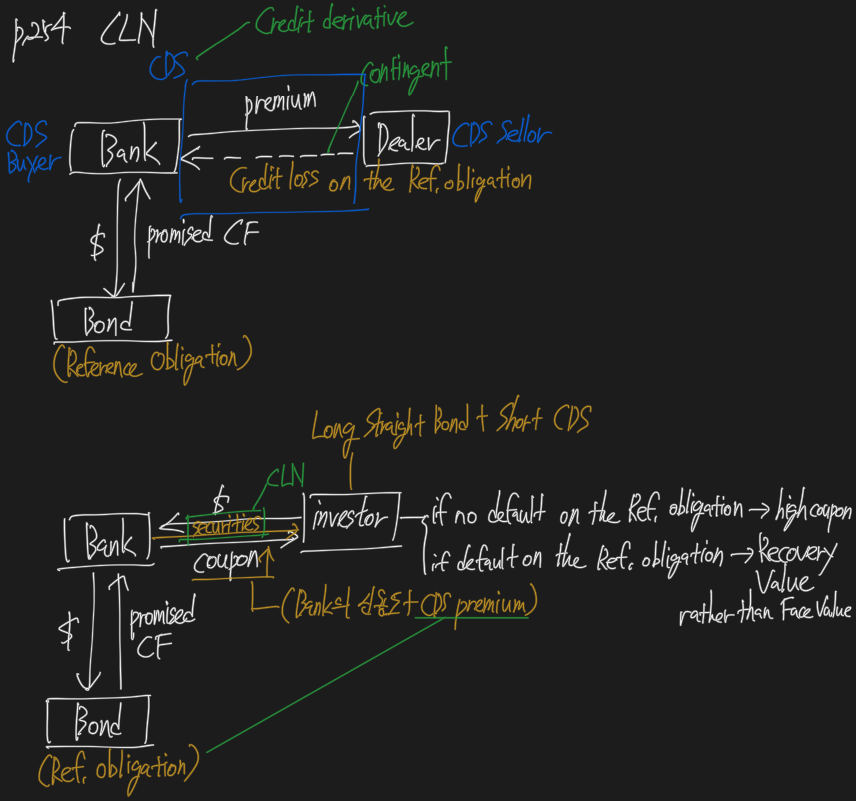 p.254 CLN
Credit derivative
CDS
Contingent
premium
CDS
Buyer
Bank
Dealer
CDS Sellor
Credit loss on the Ref. obligation
$
promised CF
Bond
(Reference Obligation)
Long Straight Bond + Short CDS
CLN
$
securities
coupon
Bank
investor
if no default on the Ref. obligation → high coupon
if default on the Ref. obligation → Recovery
Value
rather than Face Value
(Bank의 신용도 + CDS premium)
$
promised
CF
Bond
(Ref. obligation)